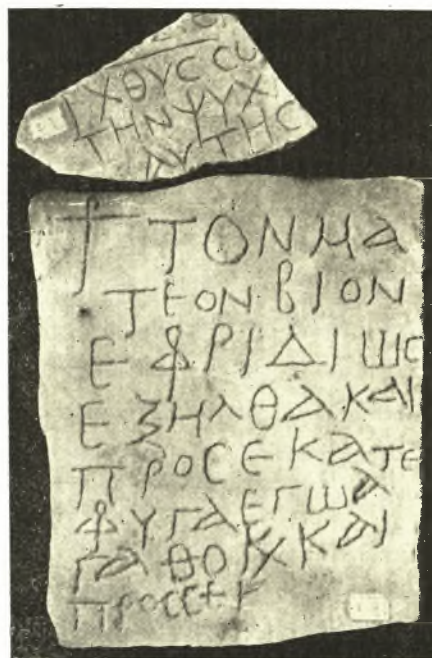 ΙΧΘΥC Cω
ΤΗΝ ΨΥΧ
ΑΥΤΗC
⳨ ΤΟΝ ΜΑ
ΤΕΟΝ ΒΙΟΝ
ΕΦΡΙΔΙωC
ΕΞΗΛΘΑ ΚΑΙ
ΠΡΟC Ε ΚΑΤΕ
ΦΥΓΑ ΕΓω Α
ΓΑΘΟ ΚΑΙ
ΠΡΟC